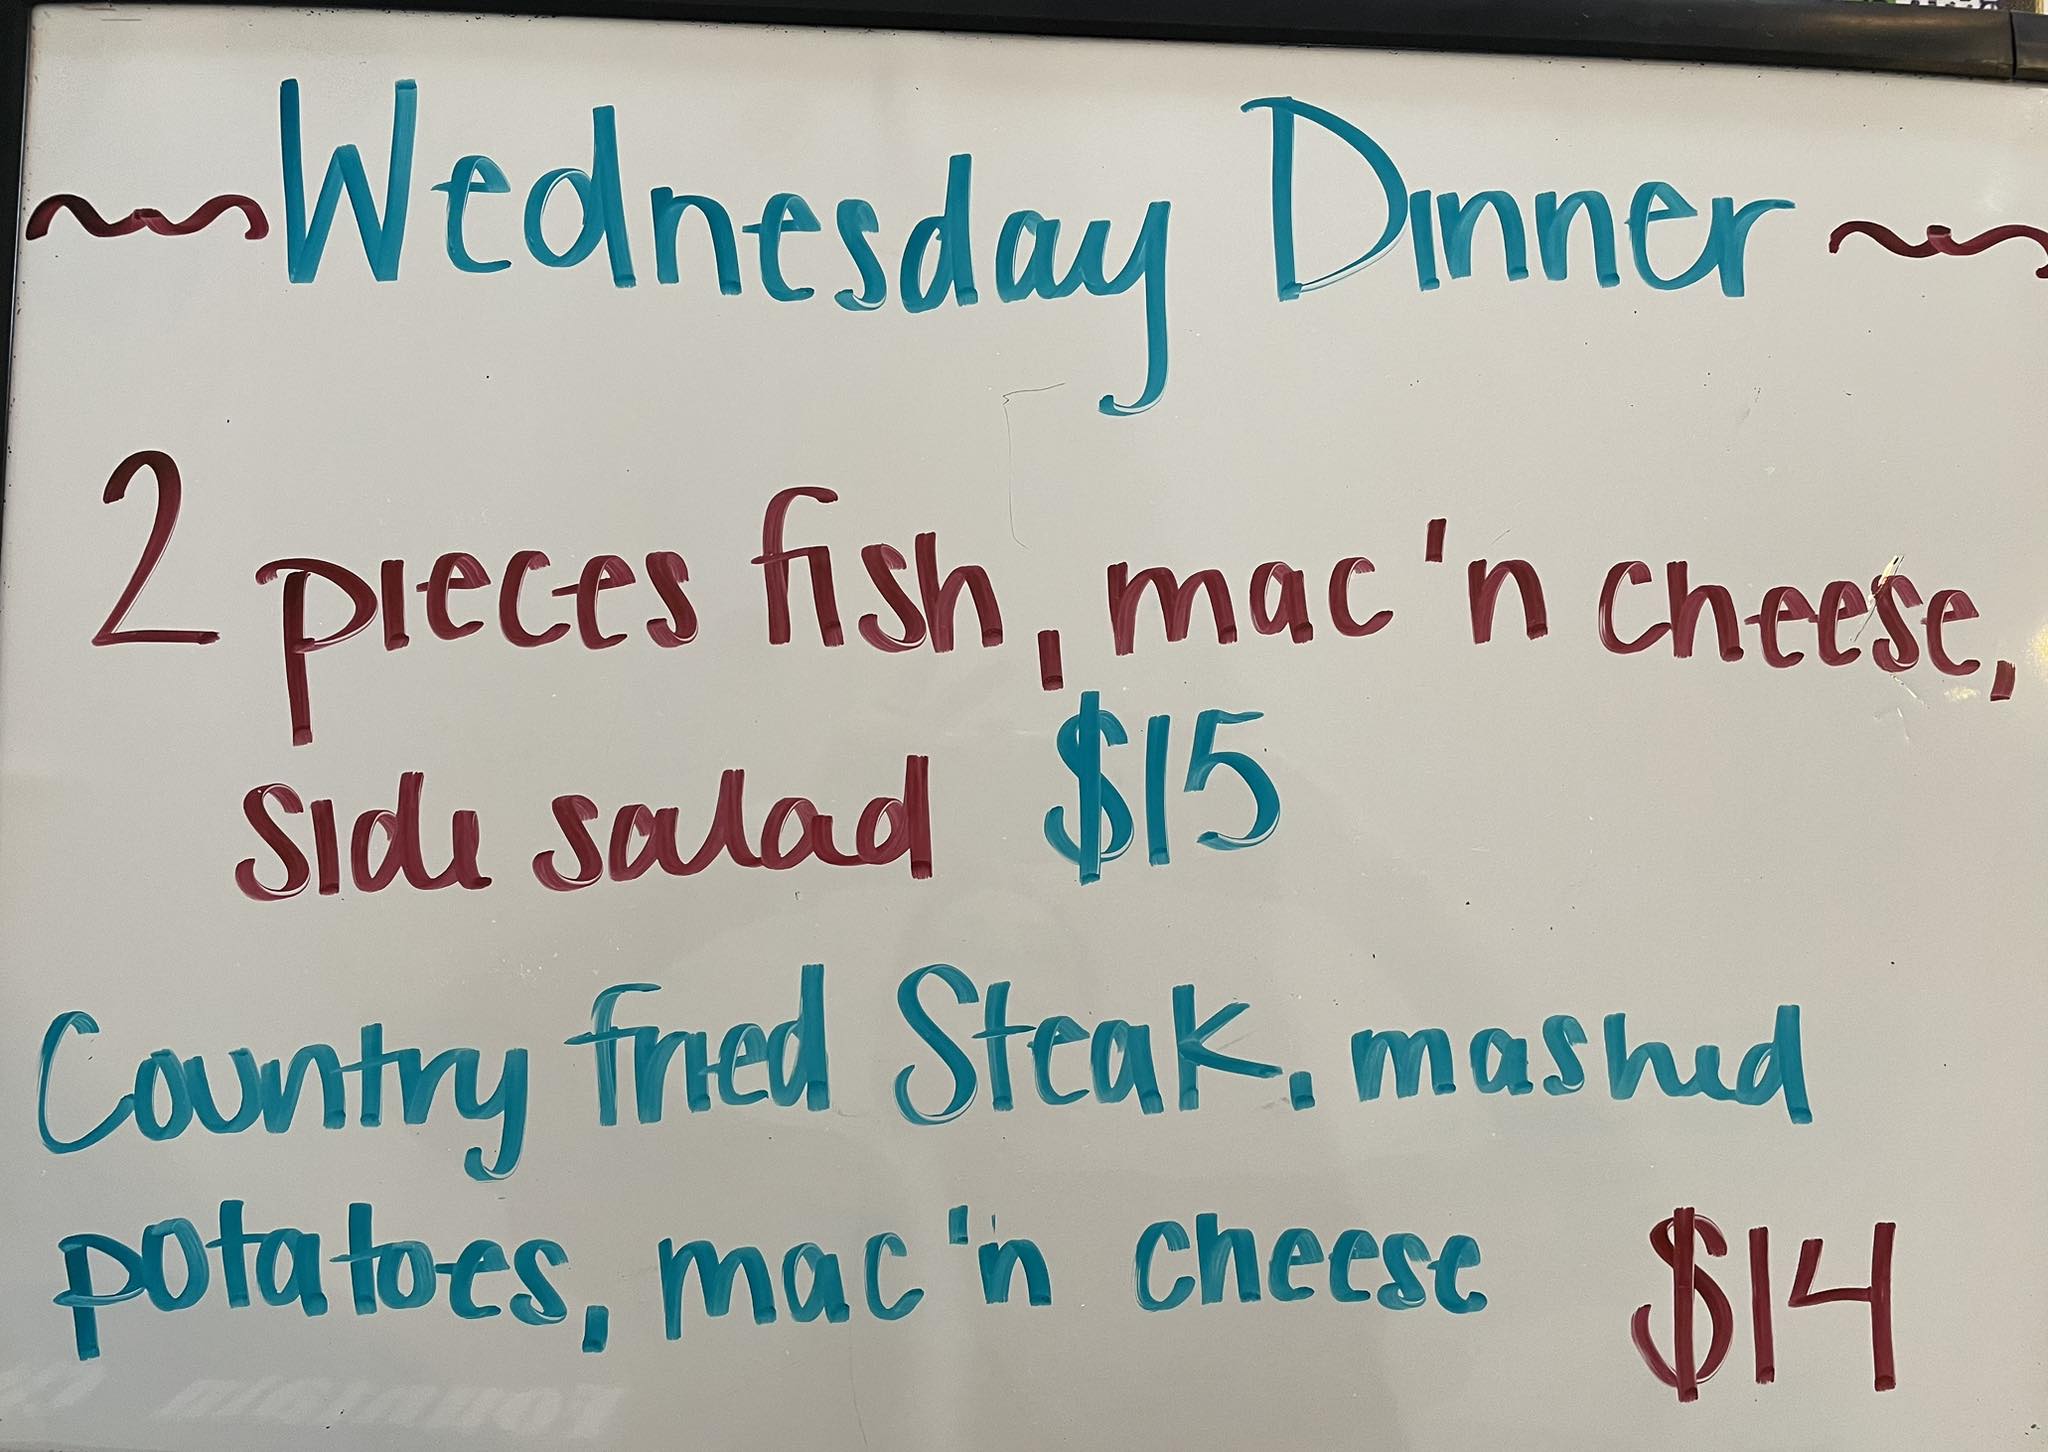 Wednesday Dinner
2 pieces fish, mac 'n cheese,
side salad $15
Country fried Steak, mashed
potatoes, mac 'n cheese $14